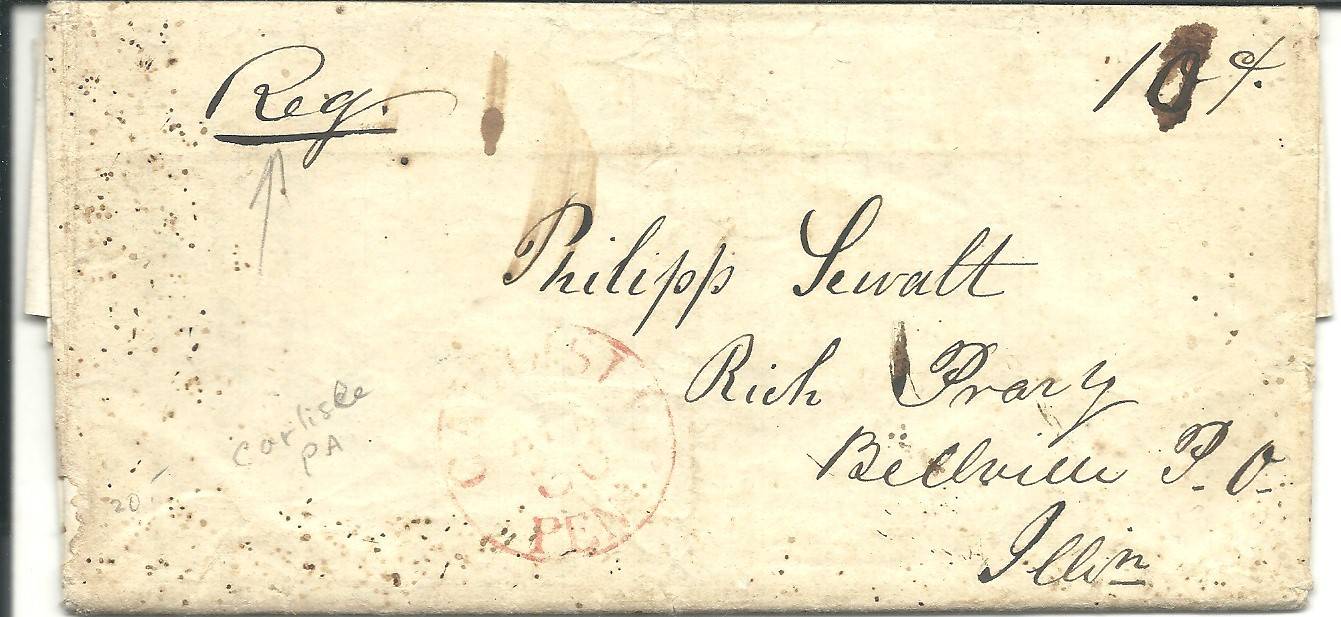 Reg. 10 ¢.
Philipp Sewalt
Rich Prary
Bellville P. O.
Illin
carliske
PA
20
PEN